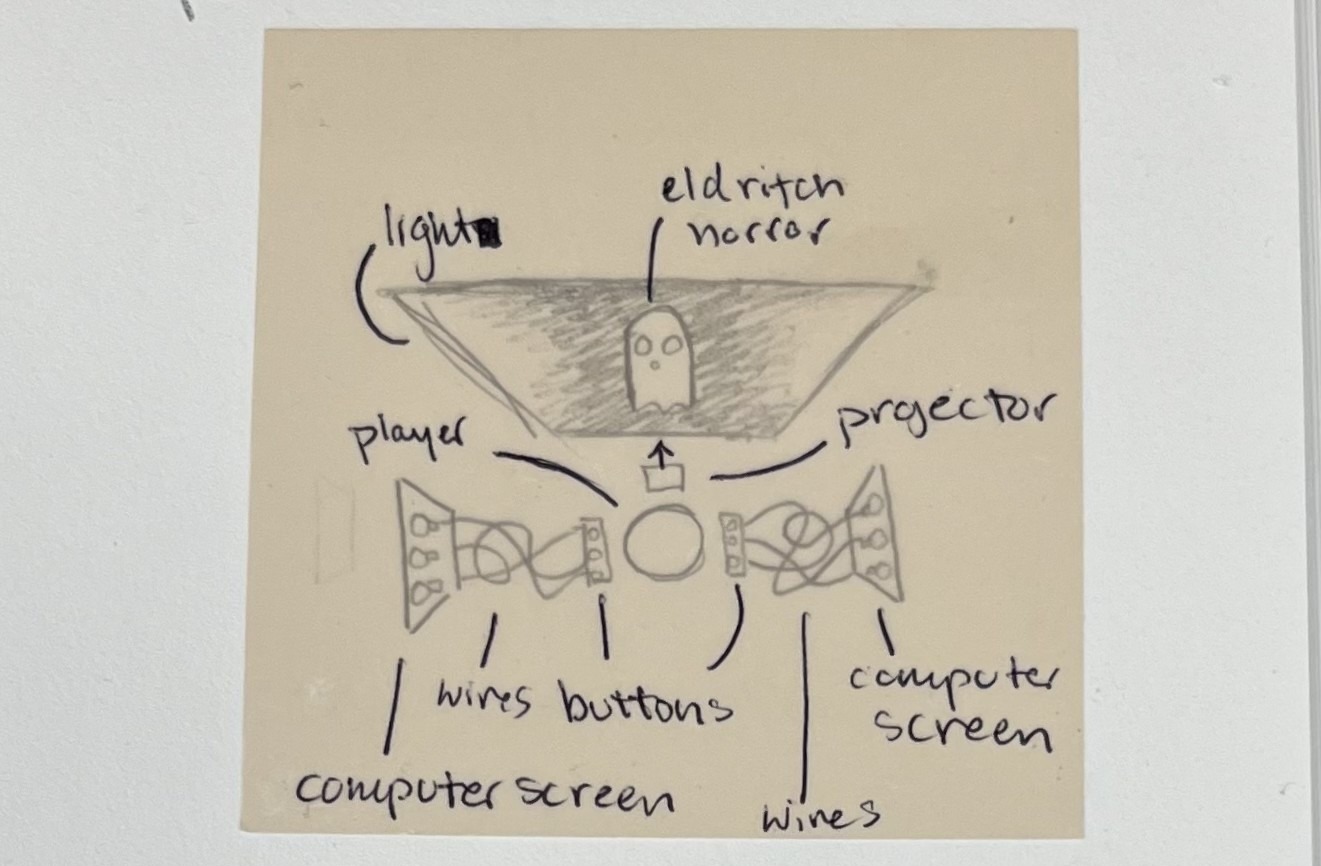 light
eldritch
horror
player
projector
wires
buttons
computer
screen
computer screen
wires